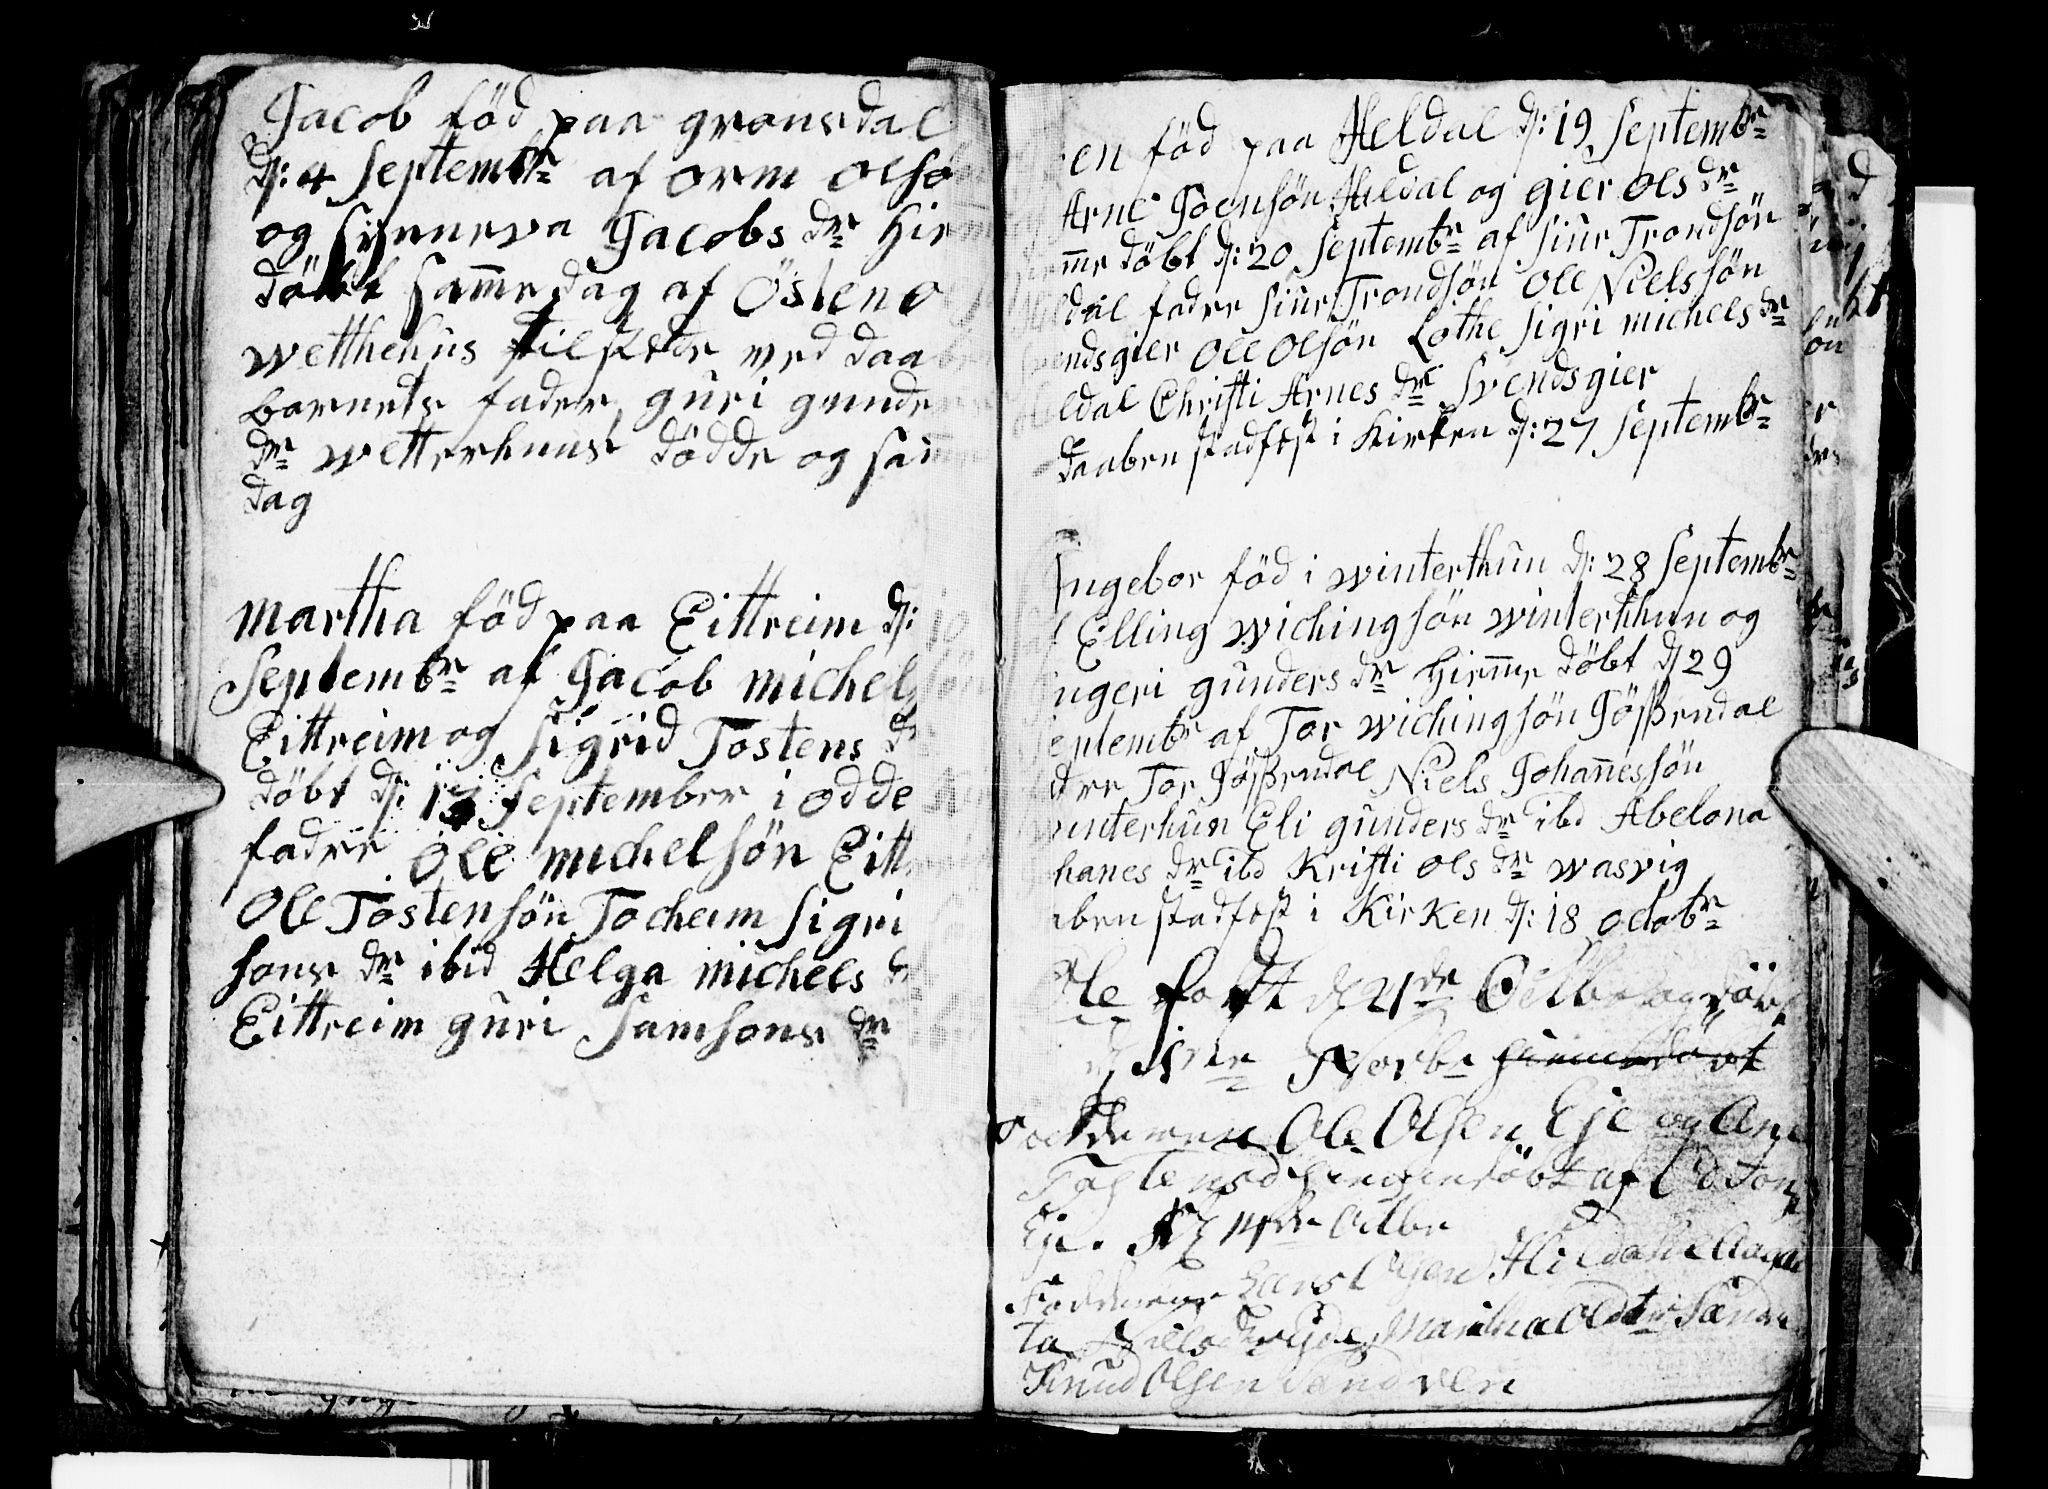 Jacob föd paa gronsdal
d: 4 Septembr af orm olsö
og Synneva Jacobs dr hie
döbt samme dag af Östen o
wetthehus tilstede ved daa
barnets fader guri gunde
dr wetterhuus dödde og sam
dag
martha föd paa Eittreim d:
Septembr af Jacob michel
Eittreim og Sigrid Tostens d
döbt d: 13 September i odde
fadere Ole michelsön Eitt
Ole Tostensön Tocheim Sigri
sons dr ibid Helga michels d
Eittreim guri Samsons dr
en föd paa Heldal d: 19 Septembr
Arne Joensön Heldal og gier ols dr
döbt d: 20 Septembr af Siur Trondsön
dal fadere Siur Trondsön Ole Nielssön
endsgier Ole Olsön Lothe Sigri michels dr
ldal Christi Arnes dr Svendsgier
daaben stadfest i Kirken d: 27 Septembr
Ingebor föd i winterthun d: 28 Septembr
Elling wichingsön winterthun og
ngeri gunders dr hiemme döbt d 29
eptembr af Tor wichingsön Jössendal
dre Tor Jössendal Niels Johannessön
winterhun Eli gunders dr ibd Abelona
hanes dr ibd Kristi ols dr wasvig
aben stadfest i Kirken d: 18 octobr
Ole födt d 21de
Ole Olsen Eje og
Tostensd döbt af
Eje. 14de Octbr
Fadderne Lars Olsen
ta Nielsdtr Martha
Knud Olsen Sandven